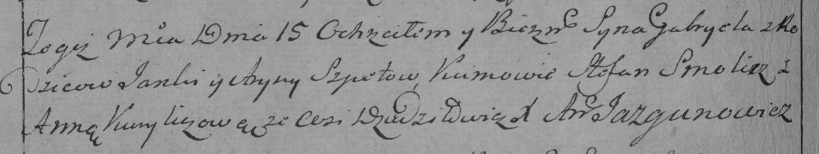 Tegoż Mca Dnia 15 Ochrzciłem y Bierzmᵉ Syna Gabryela z Ro
dzicow Janki y Aryny Szpetow Kumowie Stefan Smolicz z
Anną Kurylczową ze wsi X Ant Jazgunowicz